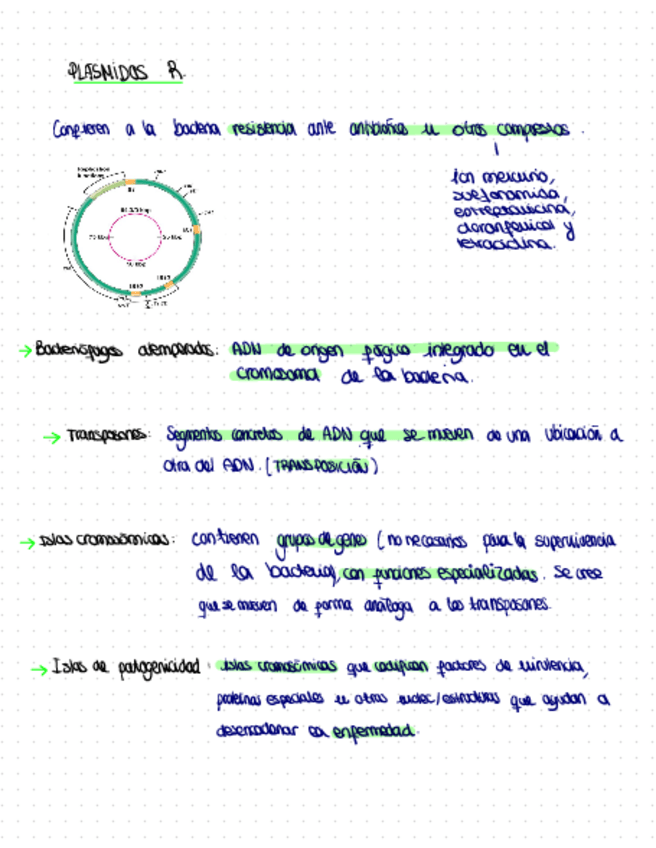 PLÁSMIDOS R.
Confieren a la bacteria resistencia ante antibióticos u otros compuestos.
Ion mercurio,
sulfonamida,
estreptomicina,
cloranfenicol y
tetraciclina.
Replication
functions
→ Bacteriófagos atemperados: ADN de origen fágico integrado en el
cromosoma de la bacteria.
→ Transposones: Segmentos concretos de ADN que se mueven de una ubicación a
otra del ADN. (TRANSPOSICIÓN)
→ Islas cromosómicas: contienen grupos de genes (no necesarios para la supervivencia
de la bacteria), con funciones especializadas. Se cree
que se mueven de forma análoga a los transposones.
→ Islas de patogenicidad: islas cromosómicas que codifican factores de virulencia,
proteínas especiales u otras estructuras que ayudan a
desencadenar la enfermedad.